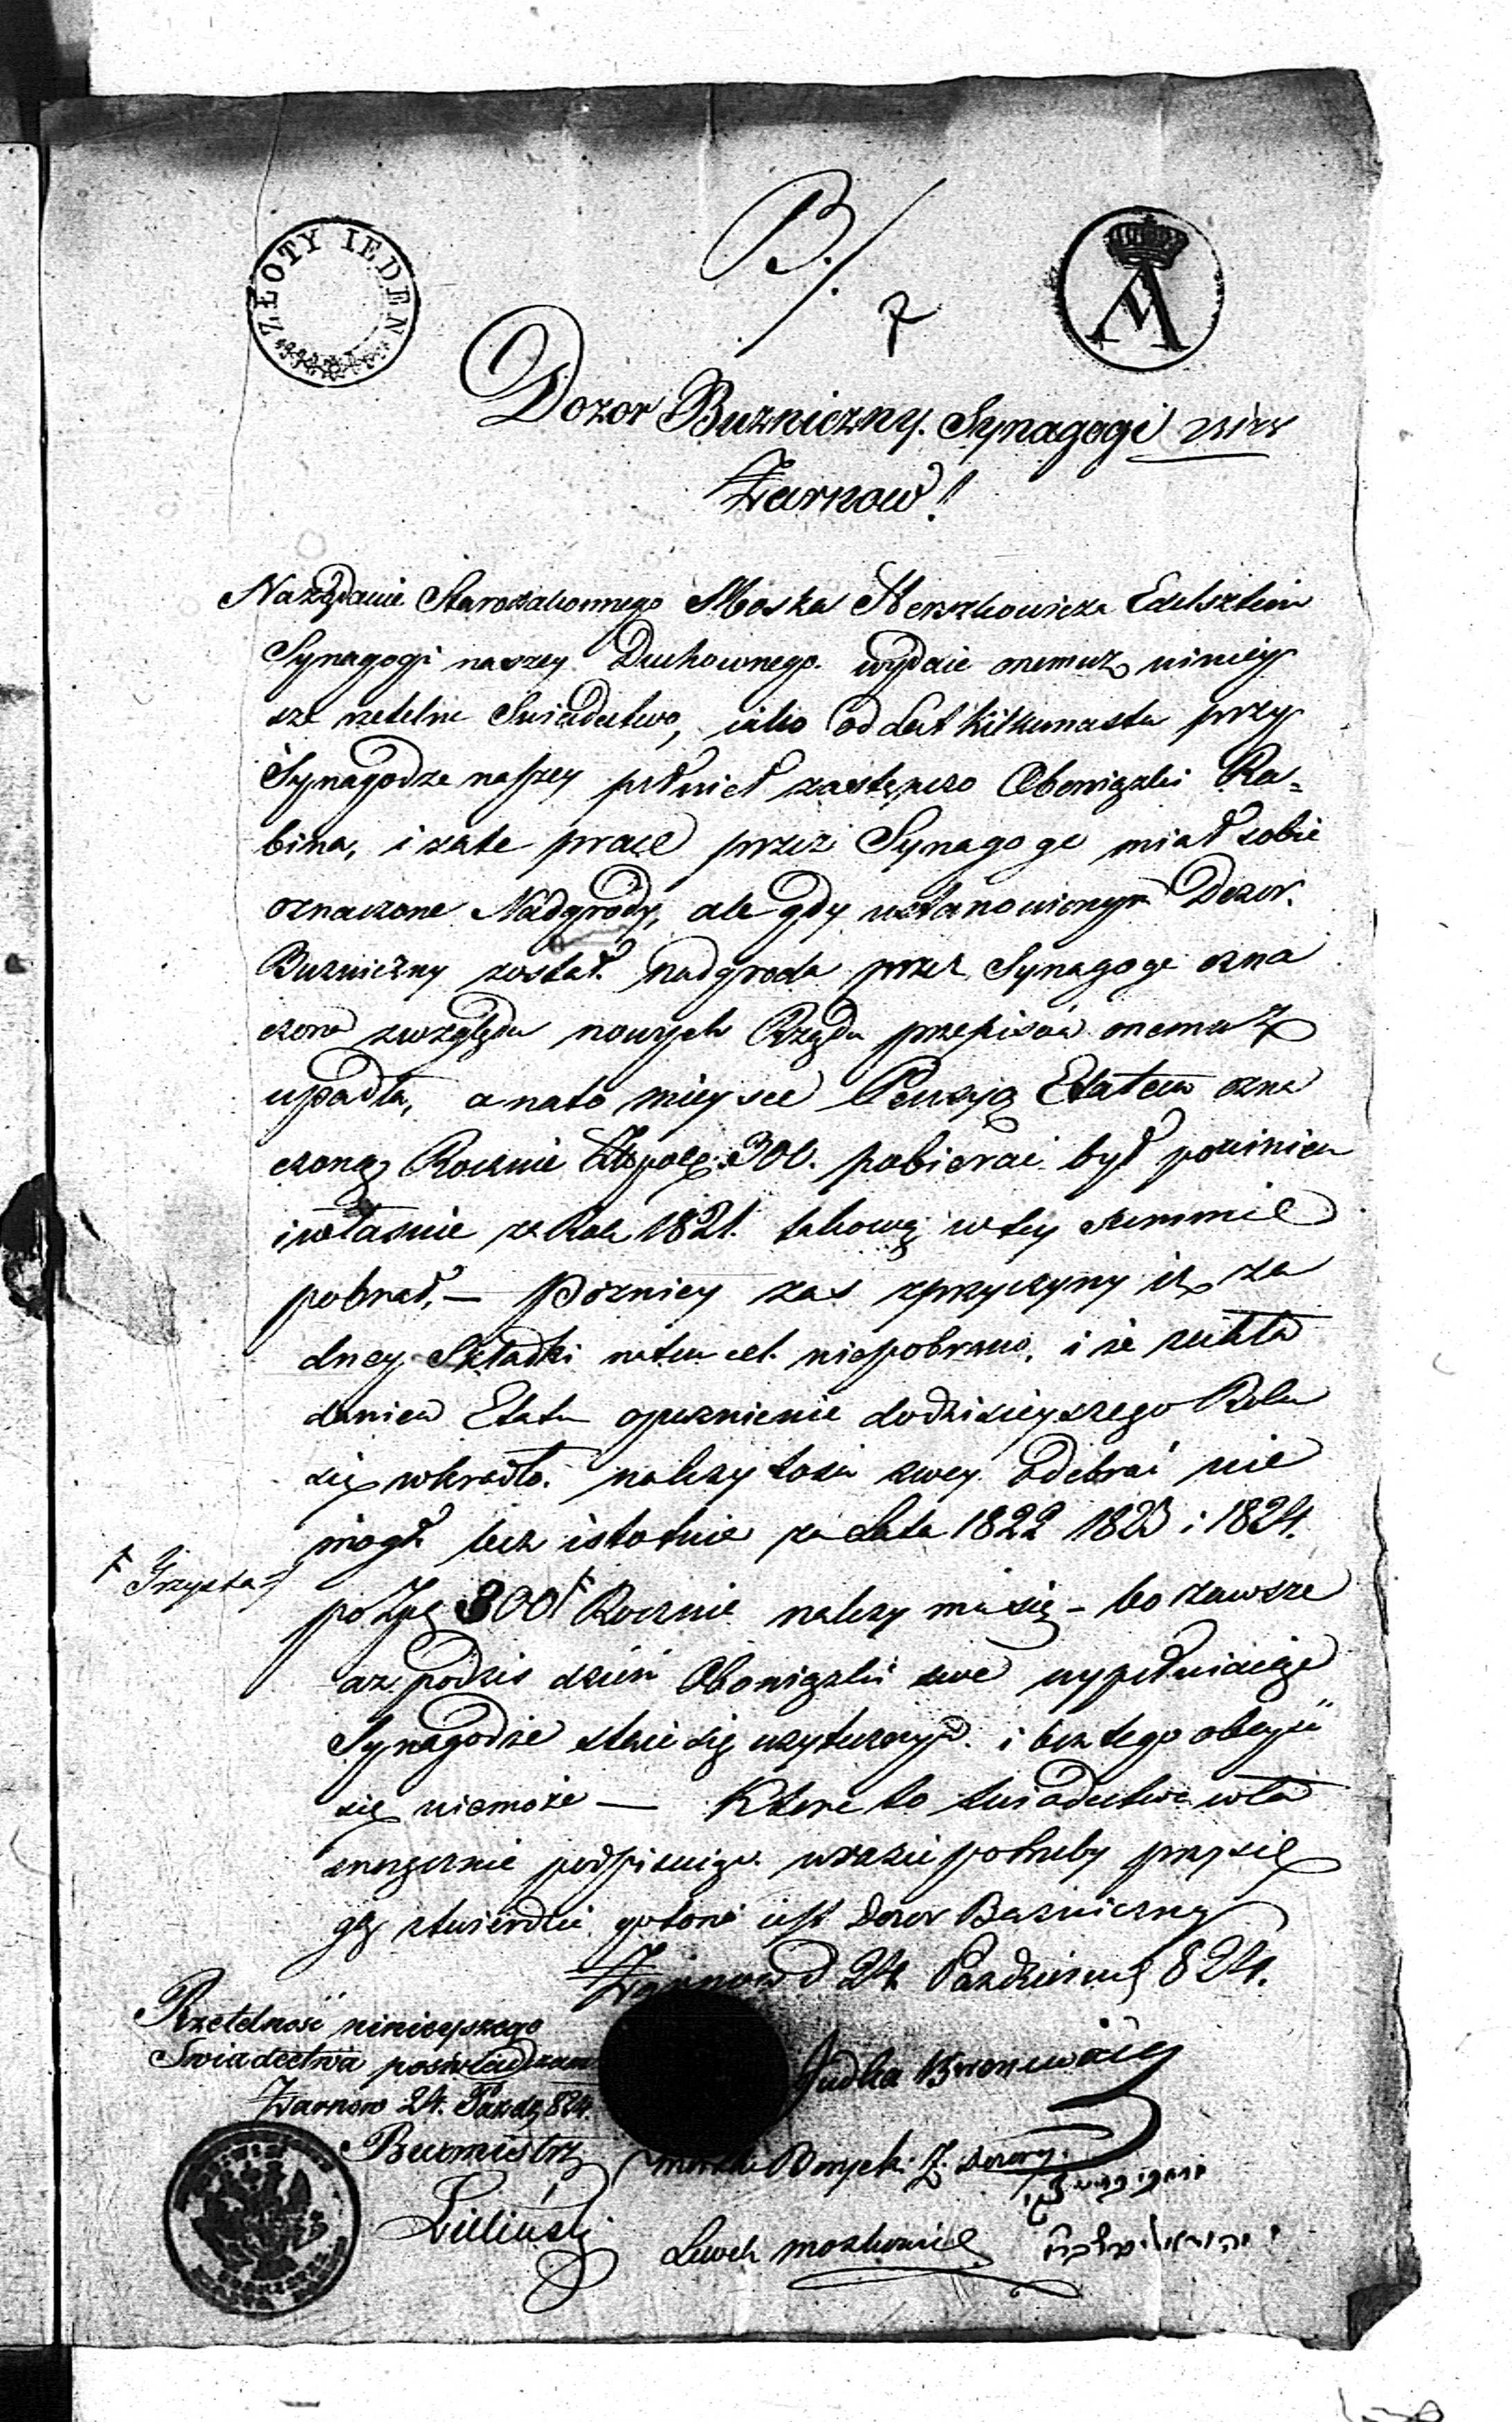 ZŁOTY IEDEN
B./.
7
A
Dozor Buzniczny. Synagogi
Żarnow!
Nażądanie Starozakonnego Moska Herszkowicza Edelsztein
Synagogi naszey Duchownego wydaie onemuż niniey
sze rzetelne Swiadectwo, iako od Lat kilkunastu przy
Synagodze naszey pełnieł zastępczo Obowiązki Ra=
bina, i zate pracę przez Synagogę miał sobie
oznaczone Nadgrody, ale gdy ustanowionym Dozor
Buzniczny został nadgroda przez Synagogę ozna
czona zwzględu nowych Rządu przepisów onemuż
upadła, a nato mieysce Pensyą Etatem ozna
czoną Rocznie Złpols: 300. pobierać był powinien
i właśnie za Rok 1821. takową w tey Summie
pobrał, — pozniey zas zprzyczyny iż ża
dney Składki naten cel niepobrano, i że zukła
daniem Etatu opuznienie dodzisieyszego Roku
się wkradło. należytości swey odebrać nie
mógł lecz istotnie za Lata 1822 1823 i 1824.
Ŧ Trzysta
po Złp 300 Ŧ Rocznie należy mu się – bo zawsze
aż podziś dzień Obowiązki swe wypełniaiąc
Synagodze staie się użytecznym. i bez tego obeyść
się niemoże — Które to swiadectwo wła
snoręcznie podpisuiąc wrazie potrzeby przysię
gą stwierdzić gotowi iest Dozor Bozniczny
Żarnow d 24 Pazdziernik 824.
Rzetelność ninieyszego
Swiadectwa poswiadczam
Żarnow 24. Pazdz 824.
Burmistrz
Judka Bronewaig
Lewek Moszkowicz